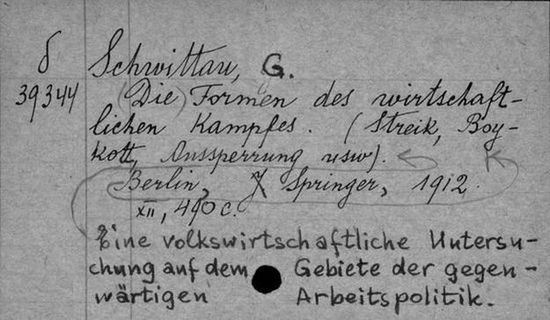 δ Schwittau, G.
39344 (Die) Formen des wirtschaft-
lichen Kampfes. (Streik, Boy-
kott, Aussperrung usw).
Berlin, J Springer, 1912.
XII, 490 c.
Eine volkswirtschaftliche Untersu-
chung auf dem Gebiete der gegen-
wärtigen Arbeitspolitik.